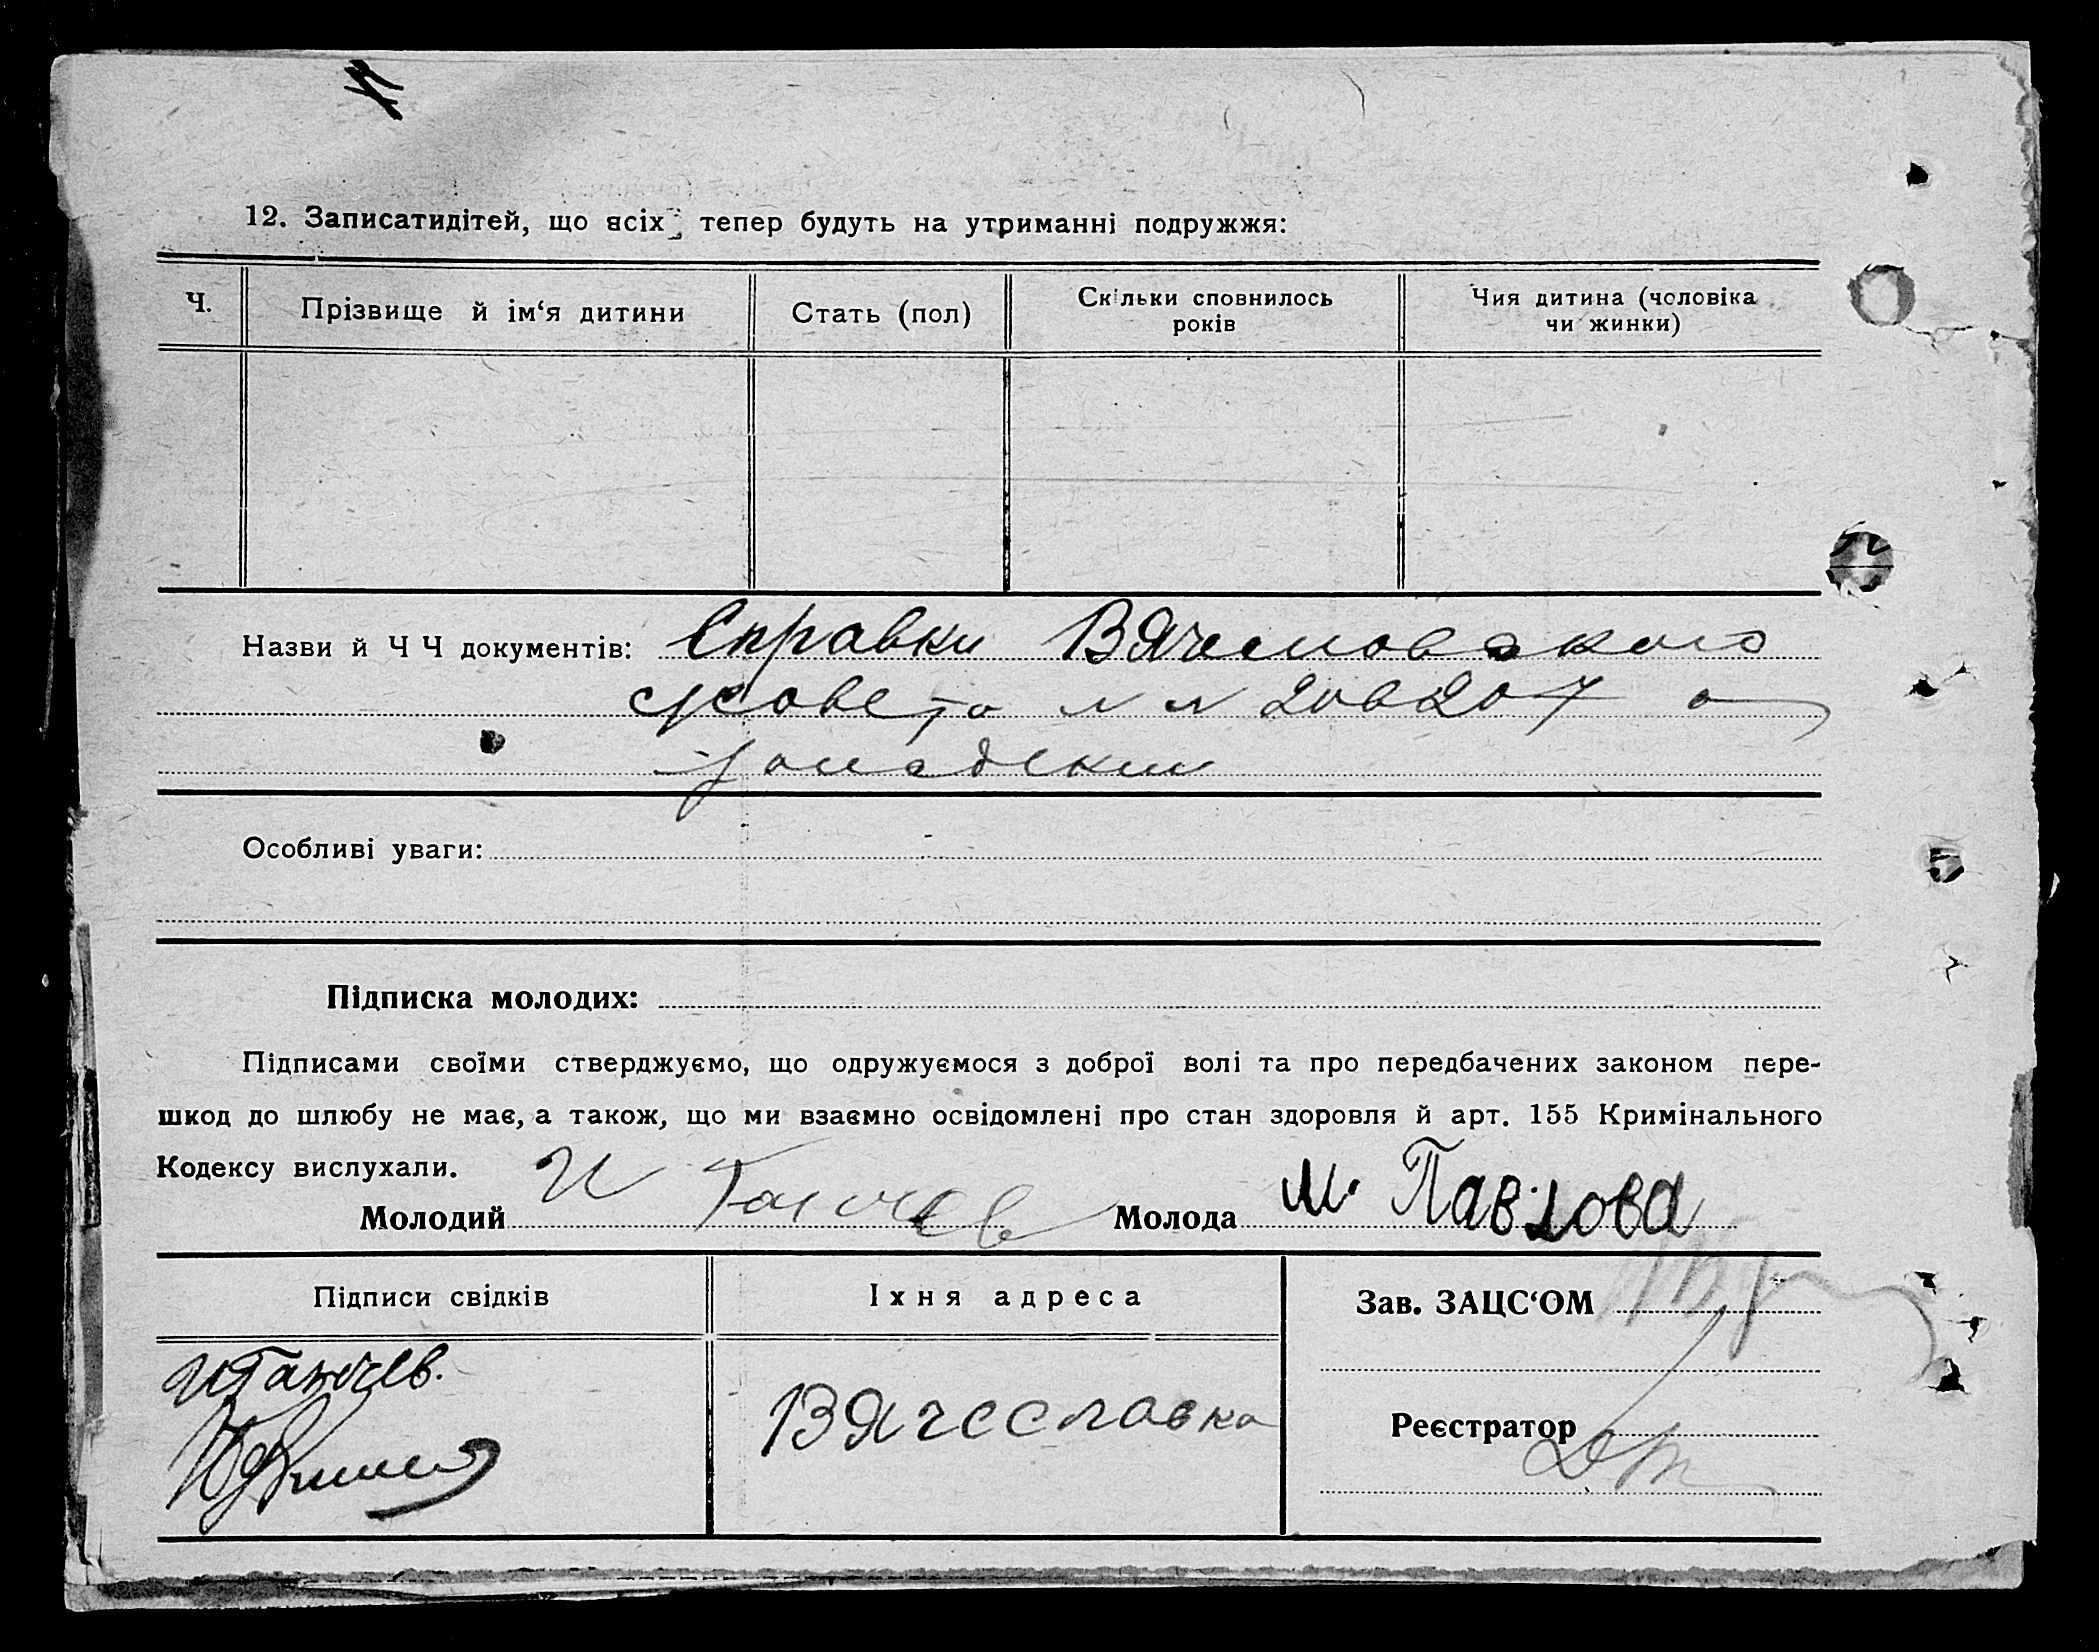 12. Записатидітей, що всіх тепер будуть на утриманні подружжя:
Ч.
Прізвище й ім‘я дитини
Стать (пол)
Скільки сповнилось
років
Чия дитина (чоловіка
чи жинки)
Назви й Ч Ч документів: Справки Вячеславского
с/совета № № 206 207 о
Особливі уваги:
Підписка молодих:
Підписами своїми стверджуємо, що одружуємося з доброї волі та про передбачених законом пере-
шкод до шлюбу не має, а також, що ми взаємно освідомлені про стан здоровля й арт. 155 Кримінального
Кодексу вислухали.
Молодий И Ганчев Молода М. Павлова
Підписи свідків
Іхня адреса
Зав. ЗАЦС‘ОМ
И Ганчев.
Вячеславка
Реєстратор